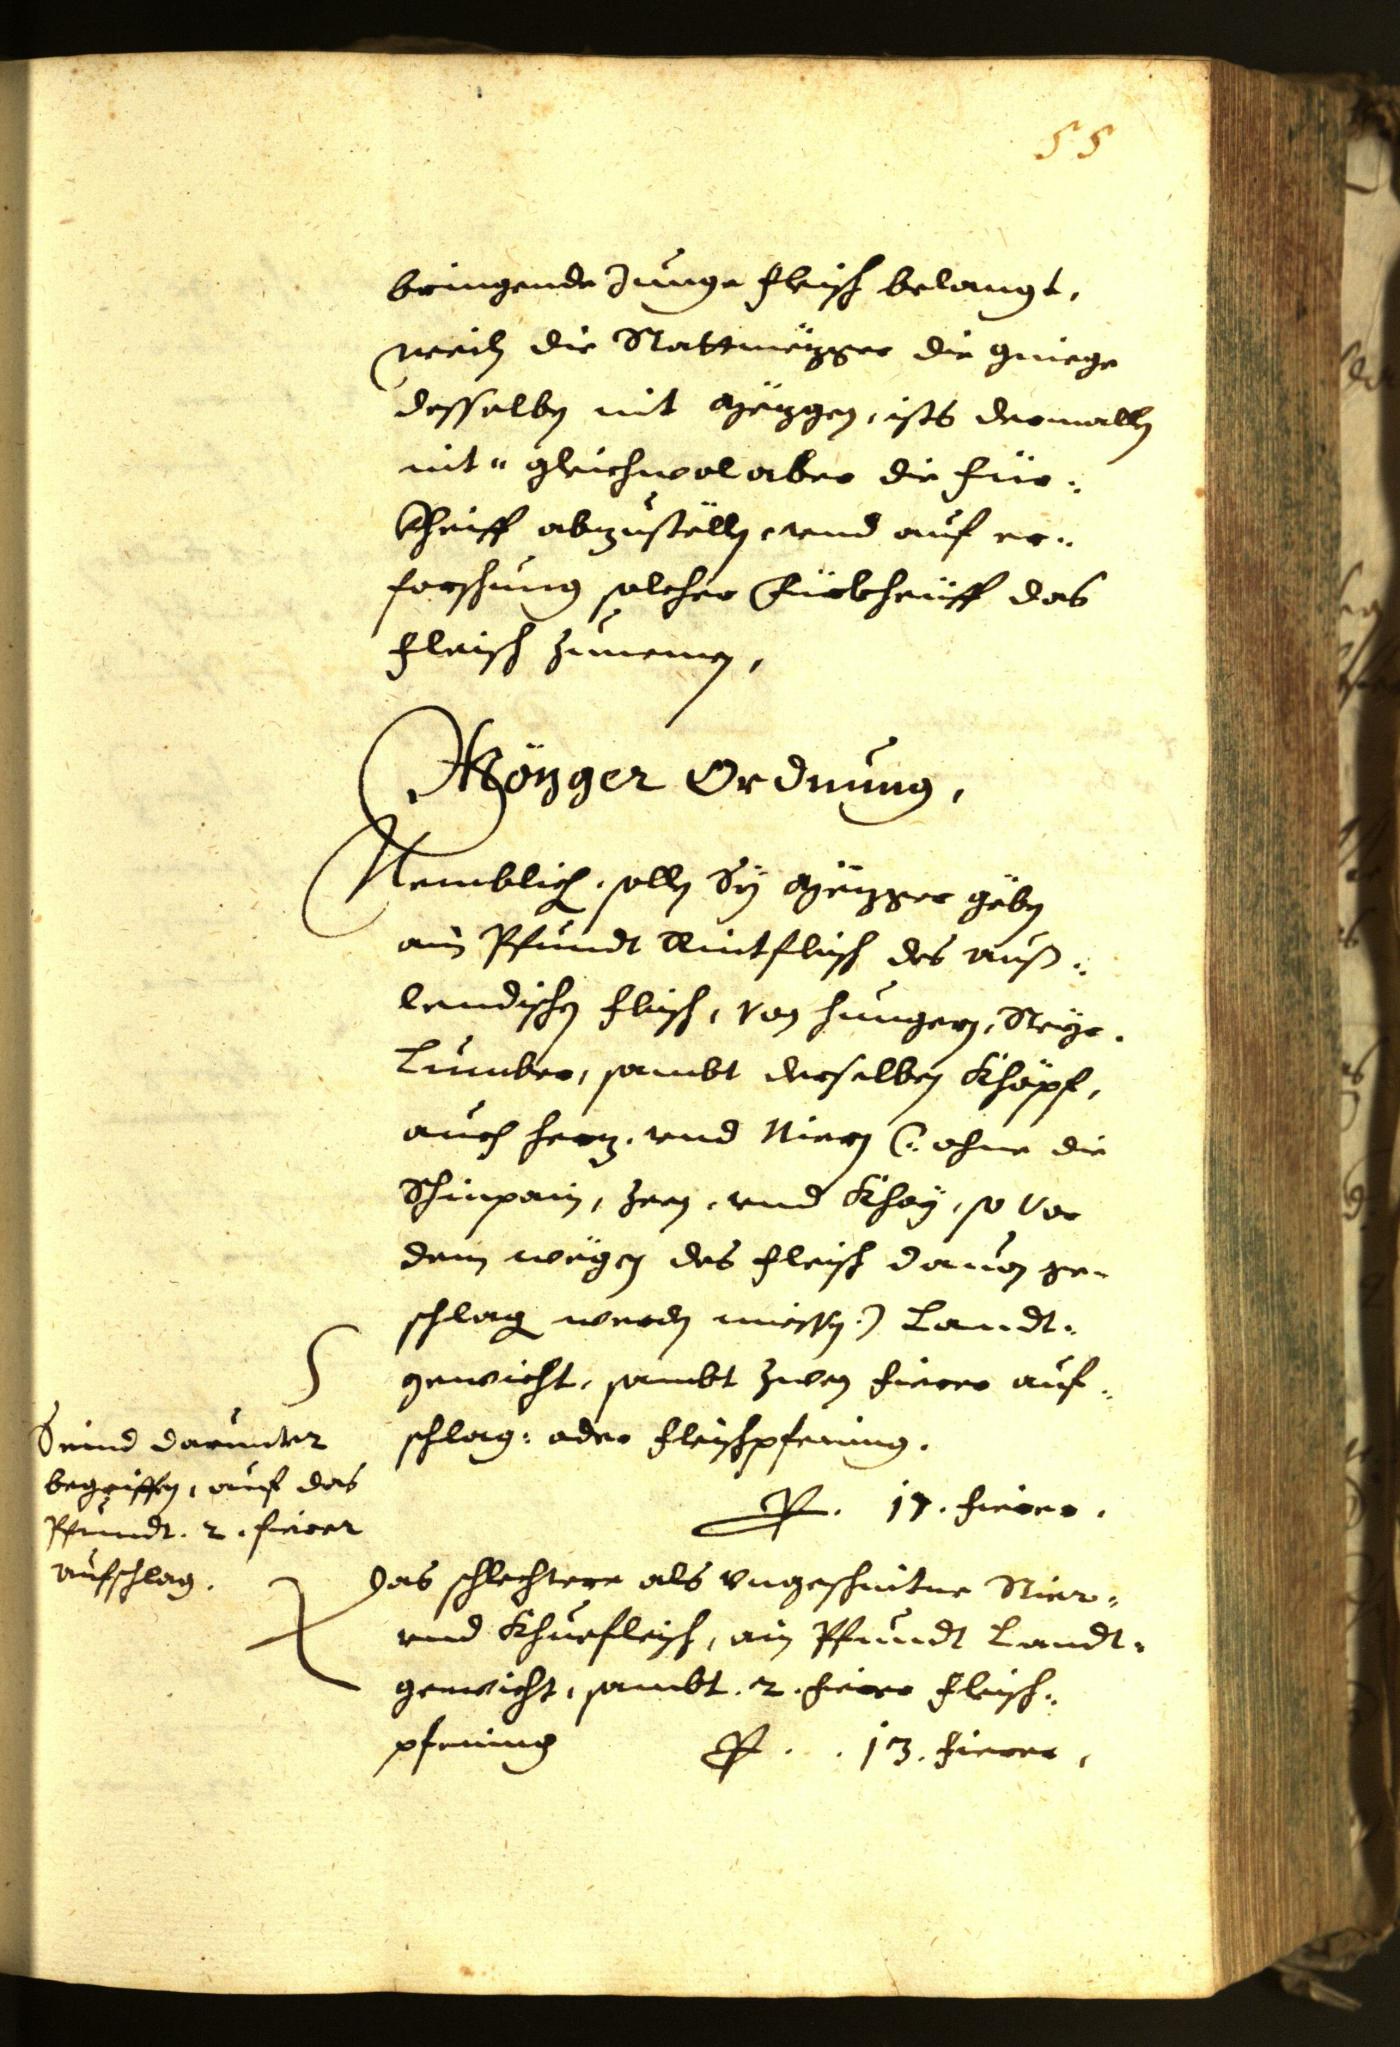 55
bringende Junge fleisch belangt,
weiln die Statmëzger die gniege
desselben nit mëzgen, ists dermalln
nit " gleichwol aber die für„
Kheiff abzustölln, vnd auf er„
forschung solcher Fürkheüff das
fleisch zunemen,
Mözger Ordnung,
Nemblich, solln Sÿ Mëzger gëben
ain Pfundt Rintfleisch des auß„
lendischen fleisch, von hungern, Steyr.
Lumber, sambt derselben Khöpf,
auch herz, vnd Niern (: ohne die
Schinpain, Zeen, vnd Khöy, so vor
dem wëgen des fleisch dauon ge„
schlagen werden miessen :) Landt„
gewicht, sambt zwen fierer auf„
schlag: oder fleischpfening.
P. 17. fierer.
Seind darunter
begriffen, auf das
Pfundt. 2. fierer
aufschlag.
Das schlechtere als vngeschnitne Stier„
vnd Khuefleisch, ain Pfundt Landt„
gewicht, sambt. 2. fierer fleisch„
pfening P. . 13. fierer,